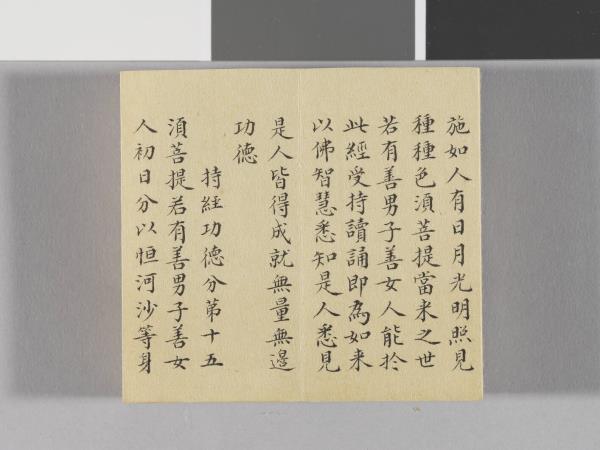 施如人有日月光明照見
種種色湏菩提當来之世
若有善男子善女人能扵
此經受持讀誦即為如来
以佛智慧悉知是人悉見
是人皆得成就無量無邉
功德
持經功德分苐十五
湏菩提若有善男子善女
人初日分以恒河沙等身